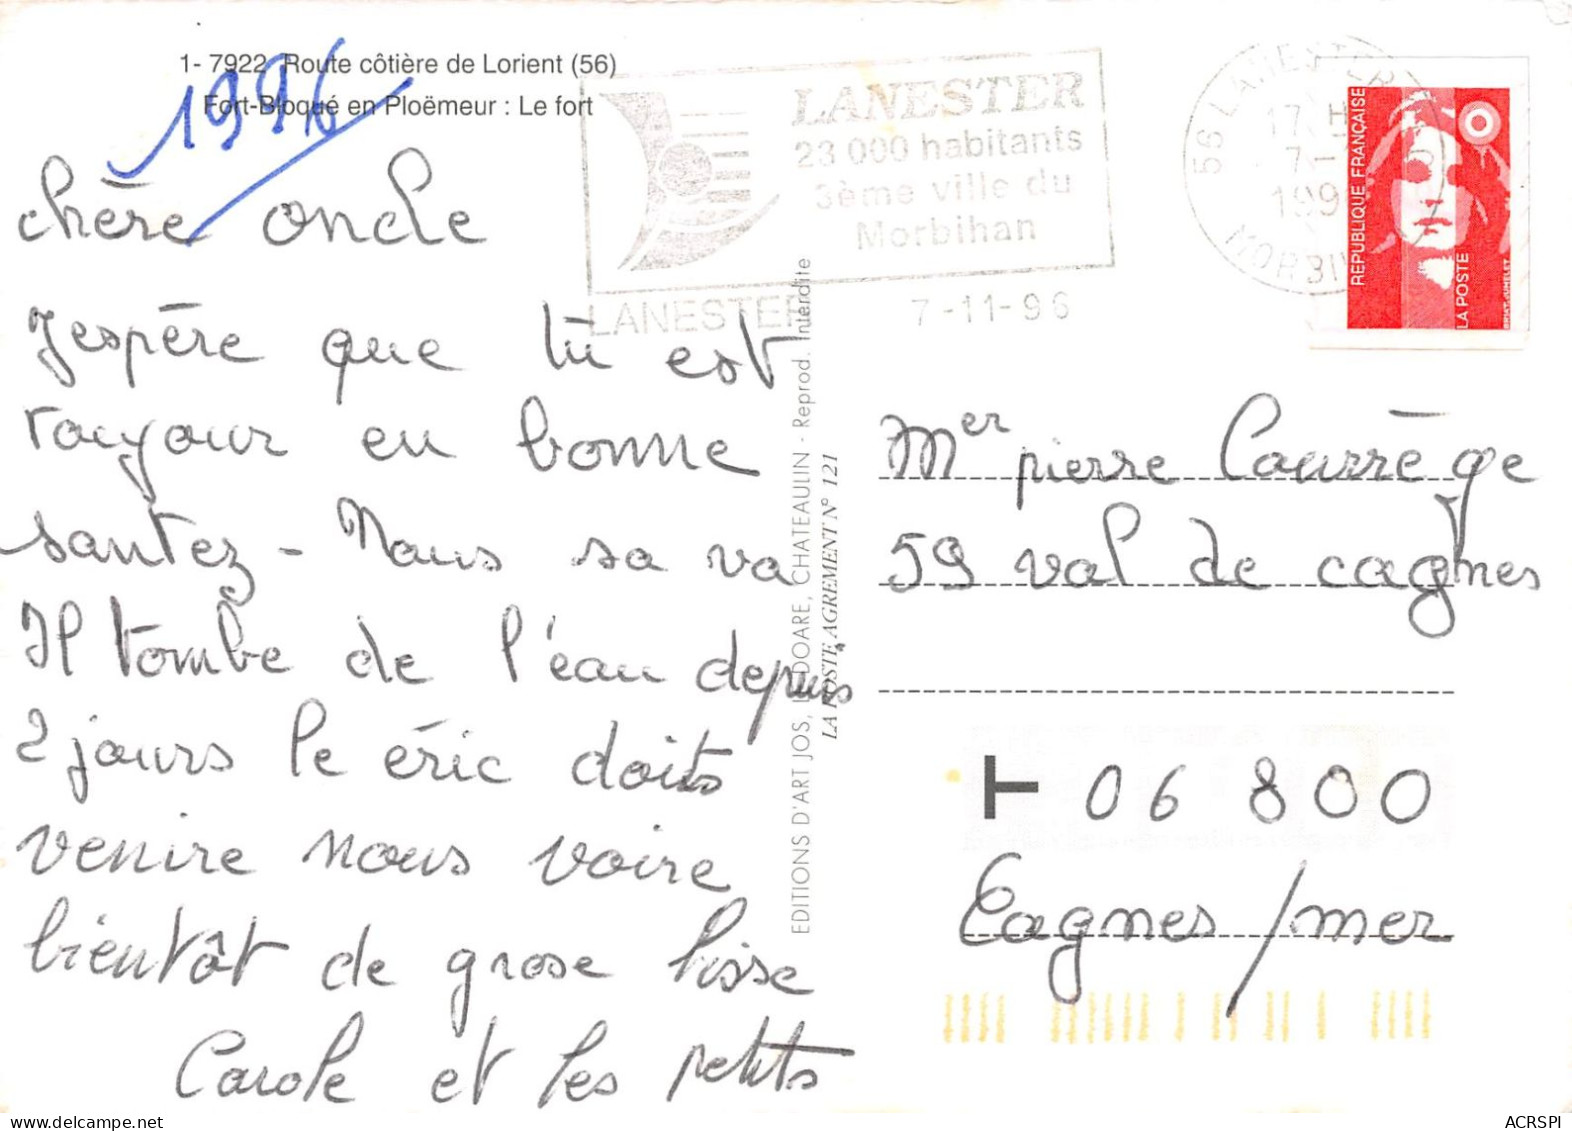 1- 7922 Route côtière de Lorient (56)
Fort-Bloqué en Ploëmeur : Le fort
1996
LANESTER
23 000 habitants
3ème ville du
Morbihan
LANESTER 7-11-96
56 LANESTER
17 H
7-
199
MORBI
REPUBLIQUE FRANÇAISE
LA POSTE
chère oncle
J'espère que tu est
toujour en bonne
santez - Nous sa va
Il tombe de l'éau depuis
2 jours le éric doits
venire nous voire
bientôt de grose bisse
Carole et les petits
EDITIONS D'ART JOS, LE DOARE, CHATEAULIN - Reprod. Interdite
LA POSTE AGREMENT N° 121
Mer pierre Courrège
59 val de cagnes
T 06 800
Cagnes / mer
ACRSPI